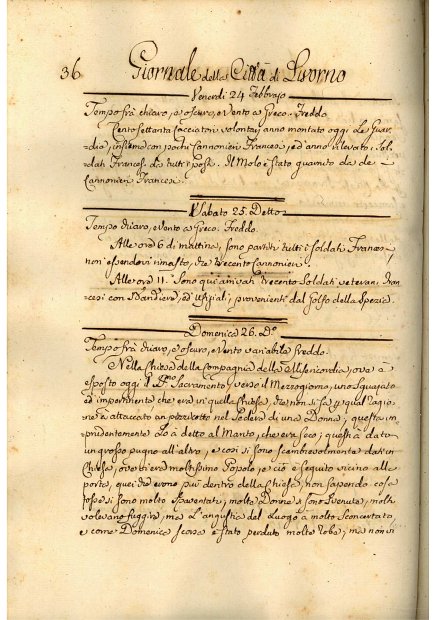 36 Giornale della Città di Livorno
Venerdì 24 Febbraro
Tempo frà chiaro, e oscuro, e Vento a Greco. Freddo.
Cento settanta Cacciatori volontarj anno montato oggi le Guar=
die, insieme con pochi Cannonieri Francesi, ed anno rilevato i Sol=
dati Francesi da tutti i posti. Il Molo è stato guarnito da de
Cannonieri Francesi.
Sabato 25. Detto
Tempo chiaro, e Vento a Greco. Freddo.
Alle ore 6 di mattina, sono partiti tutti i soldati Francesi
non essendovi rimasto, che trecento Cannonieri.
Alle ore 11. Sono qui arrivati trecento Soldati veterani Fran
cesi con Bandiera, ed Uffiziali, provenienti dal Golfo della Spezia.
Domenica 26. Do.
Tempo frà chiaro, e oscuro, e Vento variabile freddo.
Nella Chiesa della Compagnia della Misericordia, ove è
esposto oggi il SSmo Sacramento, verso il Mezzogiorno, uno sguajato
ed impertinente che era in quella Chiesa, che non si sà p. qual ragio
ne à attaccato un nel Sedere di una Donna; questa im
prudentemente lo à detto al Marito, che era seco; questi à dato
un grosso pugno all'altro, e così si sono scambievolmente dati in
Chiesa, ove vi era moltissimo Popolo, e ciò è seguito vicino alle
porte, quei che erono più dentro della Chiesa, non sapendo cosa
fosse si sono molto spaventati, molte Donne si sono svenute, molti
volevano fuggire, ma l'angustia del Luogo à molto sconcertato,
e come Domenica scorsa è stato perduto molta roba; ma non vi